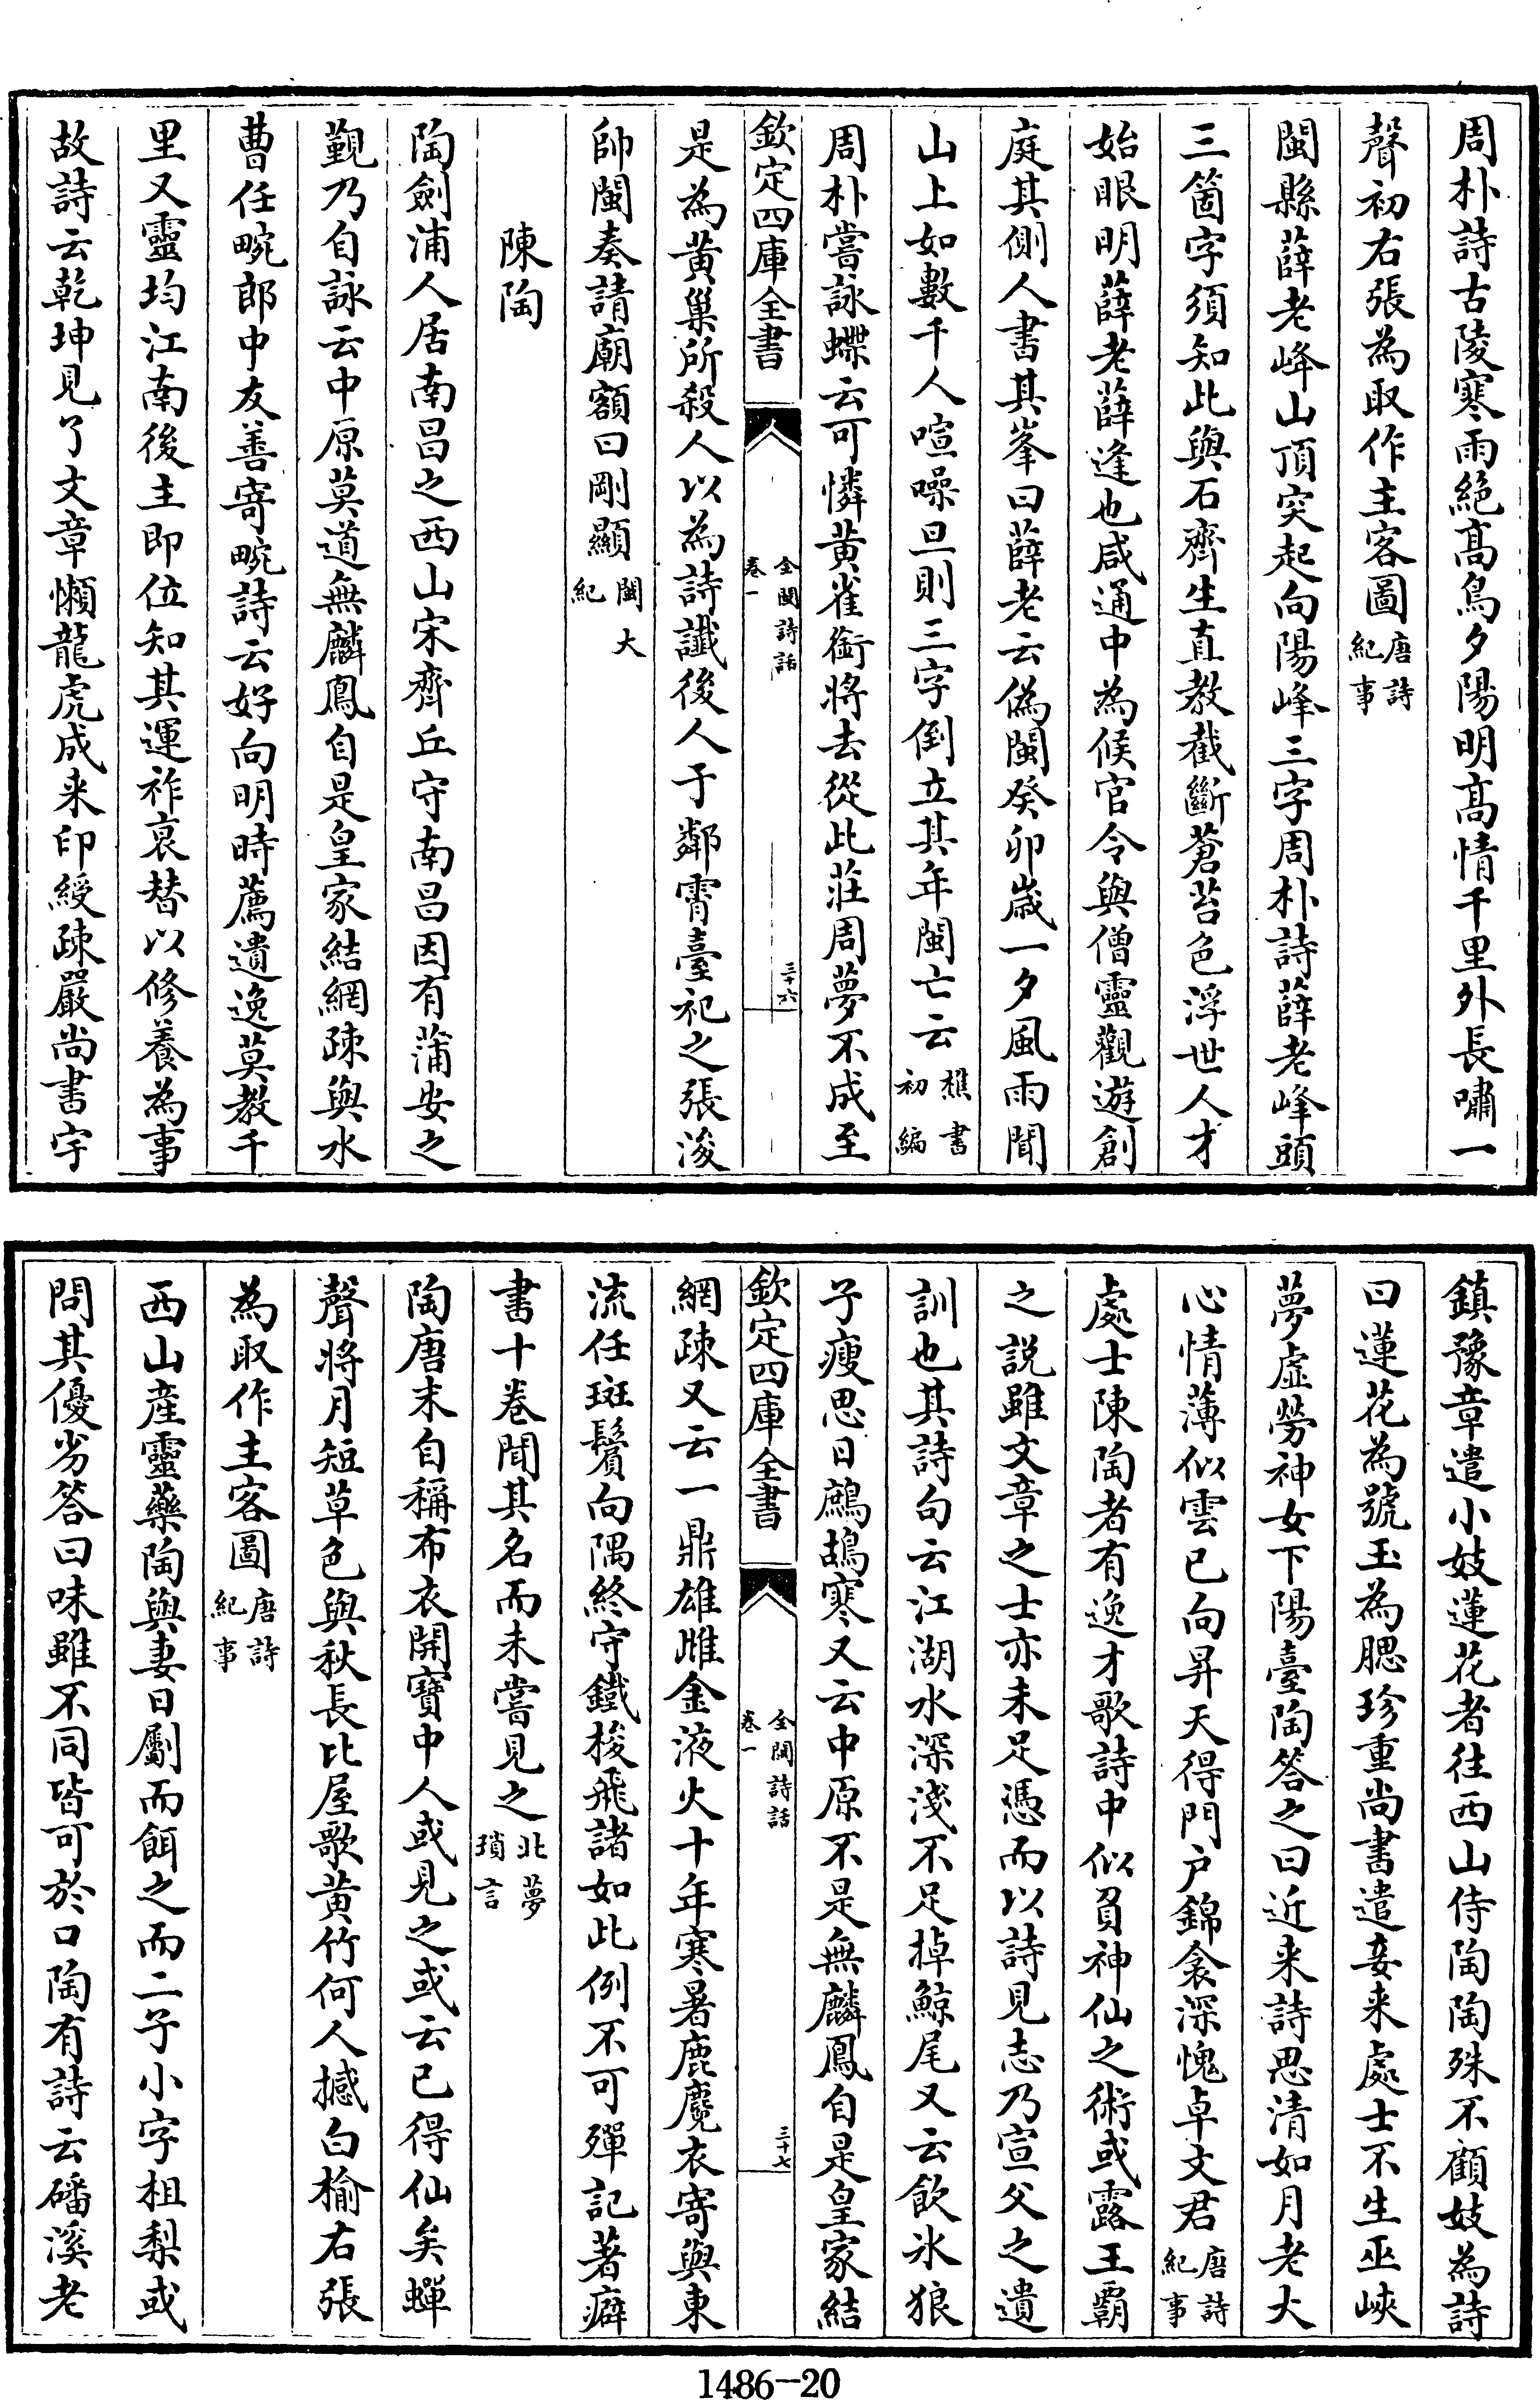 周朴詩古陵寒雨絕高鳥夕陽明高情千里外長嘯一
聲初右張為取作主客圖唐詩紀事
閩縣薛老峰山頂突起向陽峰三字周朴詩薛老峰頭
三箇字須知此與石齊生直教截斷蒼苔色浮世人才
始眼明薛老薛逢也咸通中為候官令與僧靈觀遊創
庭其側人書其峯曰薛老云偽閩癸卯歲一夕風雨聞
山上如數千人喧噪旦則三字倒立其年閩亡云樵書初編
周朴嘗詠蝶云可憐黃雀銜將去從此莊周夢不成至
欽定四庫全書 全閩詩話卷一 三十六
是為黃巢所殺人以為詩讖後人于鄰霄臺祀之張浚
帥閩奏請廟額曰剛顯閩大紀
陳陶
陶劍浦人居南昌之西山宋齊丘守南昌因有蒲安之
覲乃自詠云中原莫道無麟鳳自是皇家結網疎與水
曹任畹郎中友善寄畹詩云好向明時薦遺逸莫教千
里又靈均江南後主即位知其運祚衰替以修養為事
故詩云乾坤見了文章懶龍虎成来印綬疎嚴尚書宇
鎮豫章遣小妓蓮花者往西山侍陶陶殊不顧妓為詩
曰蓮花為號玉為腮珍重尚書遣妾来處士不生巫峽
夢虛勞神女下陽臺陶答之曰近来詩思清如月老大
心情薄似雲已向昇天得門户錦衾深愧卓文君唐詩紀事
處士陳陶者有逸才歌詩中似負神仙之術或露王霸
之說雖文章之士亦未足憑而以詩見志乃宣父之遺
訓也其詩句云江湖水深淺不足掉鯨尾又云飲冰狼
子瘦思日鷓鴣寒又云中原不是無麟鳳自是皇家結
欽定四庫全書 全閩詩話卷一 三十七
網疎又云一鼎雄雌金液火十年寒暑鹿麑衣寄與東
流任斑鬢向隅終守鐵梭飛諸如此例不可殫記著癖
書十卷聞其名而未嘗見之北夢瑣言
陶唐末自稱布衣開寶中人或見之或云已得仙矣蟬
聲將月短草色與秋長比屋歌黃竹何人撼白榆右張
為取作主客圖唐詩紀事
西山産靈藥陶與妻日劚而餌之而二子小字柤梨或
問其優劣答曰味雖不同皆可於口陶有詩云磻溪老
1486-20